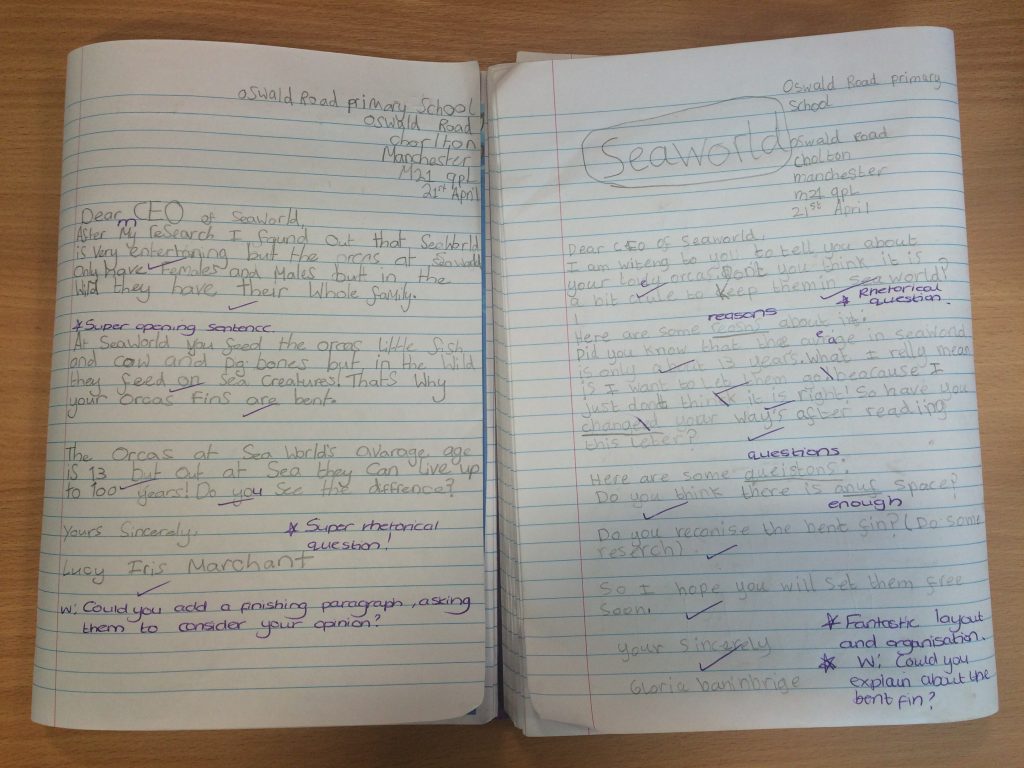 Oswald Road primary School,
Oswald Road
chorlton
Manchester
M21 9PL
21st April
Dear CEO of Seaworld,
After My research I found out that SeaWorld
is Very entertaining but the orcas at Seaworld
Only Have Females and Males but in the
Wild they have their Whole family.
*Super opening sentence
At SeaWorld you feed the orcas little fish
and cow and pg bones but in the Wild
they feed on Sea Creatures! Thats Why
your Orcas Fins are bent.
The Orcas at Sea World's avarage age
is 13 but out at Sea they Can live up
to 100 years! Do you See the diffrence?
Yours Sincerely,
* Super rhetorical
question!
Lucy Iris Marchant
W: Could you add a finishing paragraph, asking
them to consider your opinion?
Oswald Road primary
School
Seaworld
oswald Road
cholton
manchester
m21 9pL
21st April
Dear CEO of Seaworld,
I am witeng to you to tell you about
your orcas. Don't you think it is
a bit to keep them in sea world?
* Rhetorical
question.
reasons
Here are some about it:
Did you know that the in seaworld
is only 13 years. What I relly mean
is I want to let them go beacause I
just dont think it is right! So have you
changed your way's after reading
this leter?
questions
Here are some queistons:
Do you think there is anuf space?
enough
Do you reconise the bent fin? (Do some
reserch)
So I hope you will set them free
Soon.
your Sincerely
Gloria baninbrige
* Fantastic layout
and organisation.
* W: Could you
explain about the
bent fin?